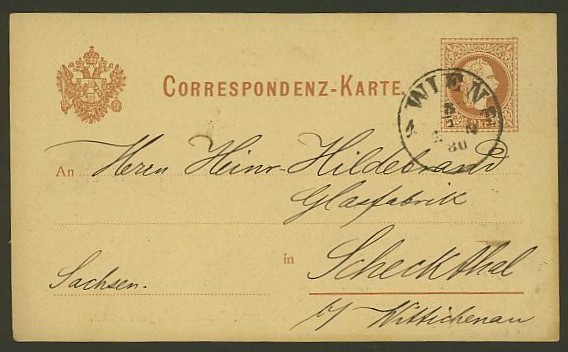 CORRESPONDENZ-KARTE.
WIEN
80
An Herrn Heinr. Hildebrand
Glasfabrik
in Scheckthal
Sachsen.
b/ Wittichenau